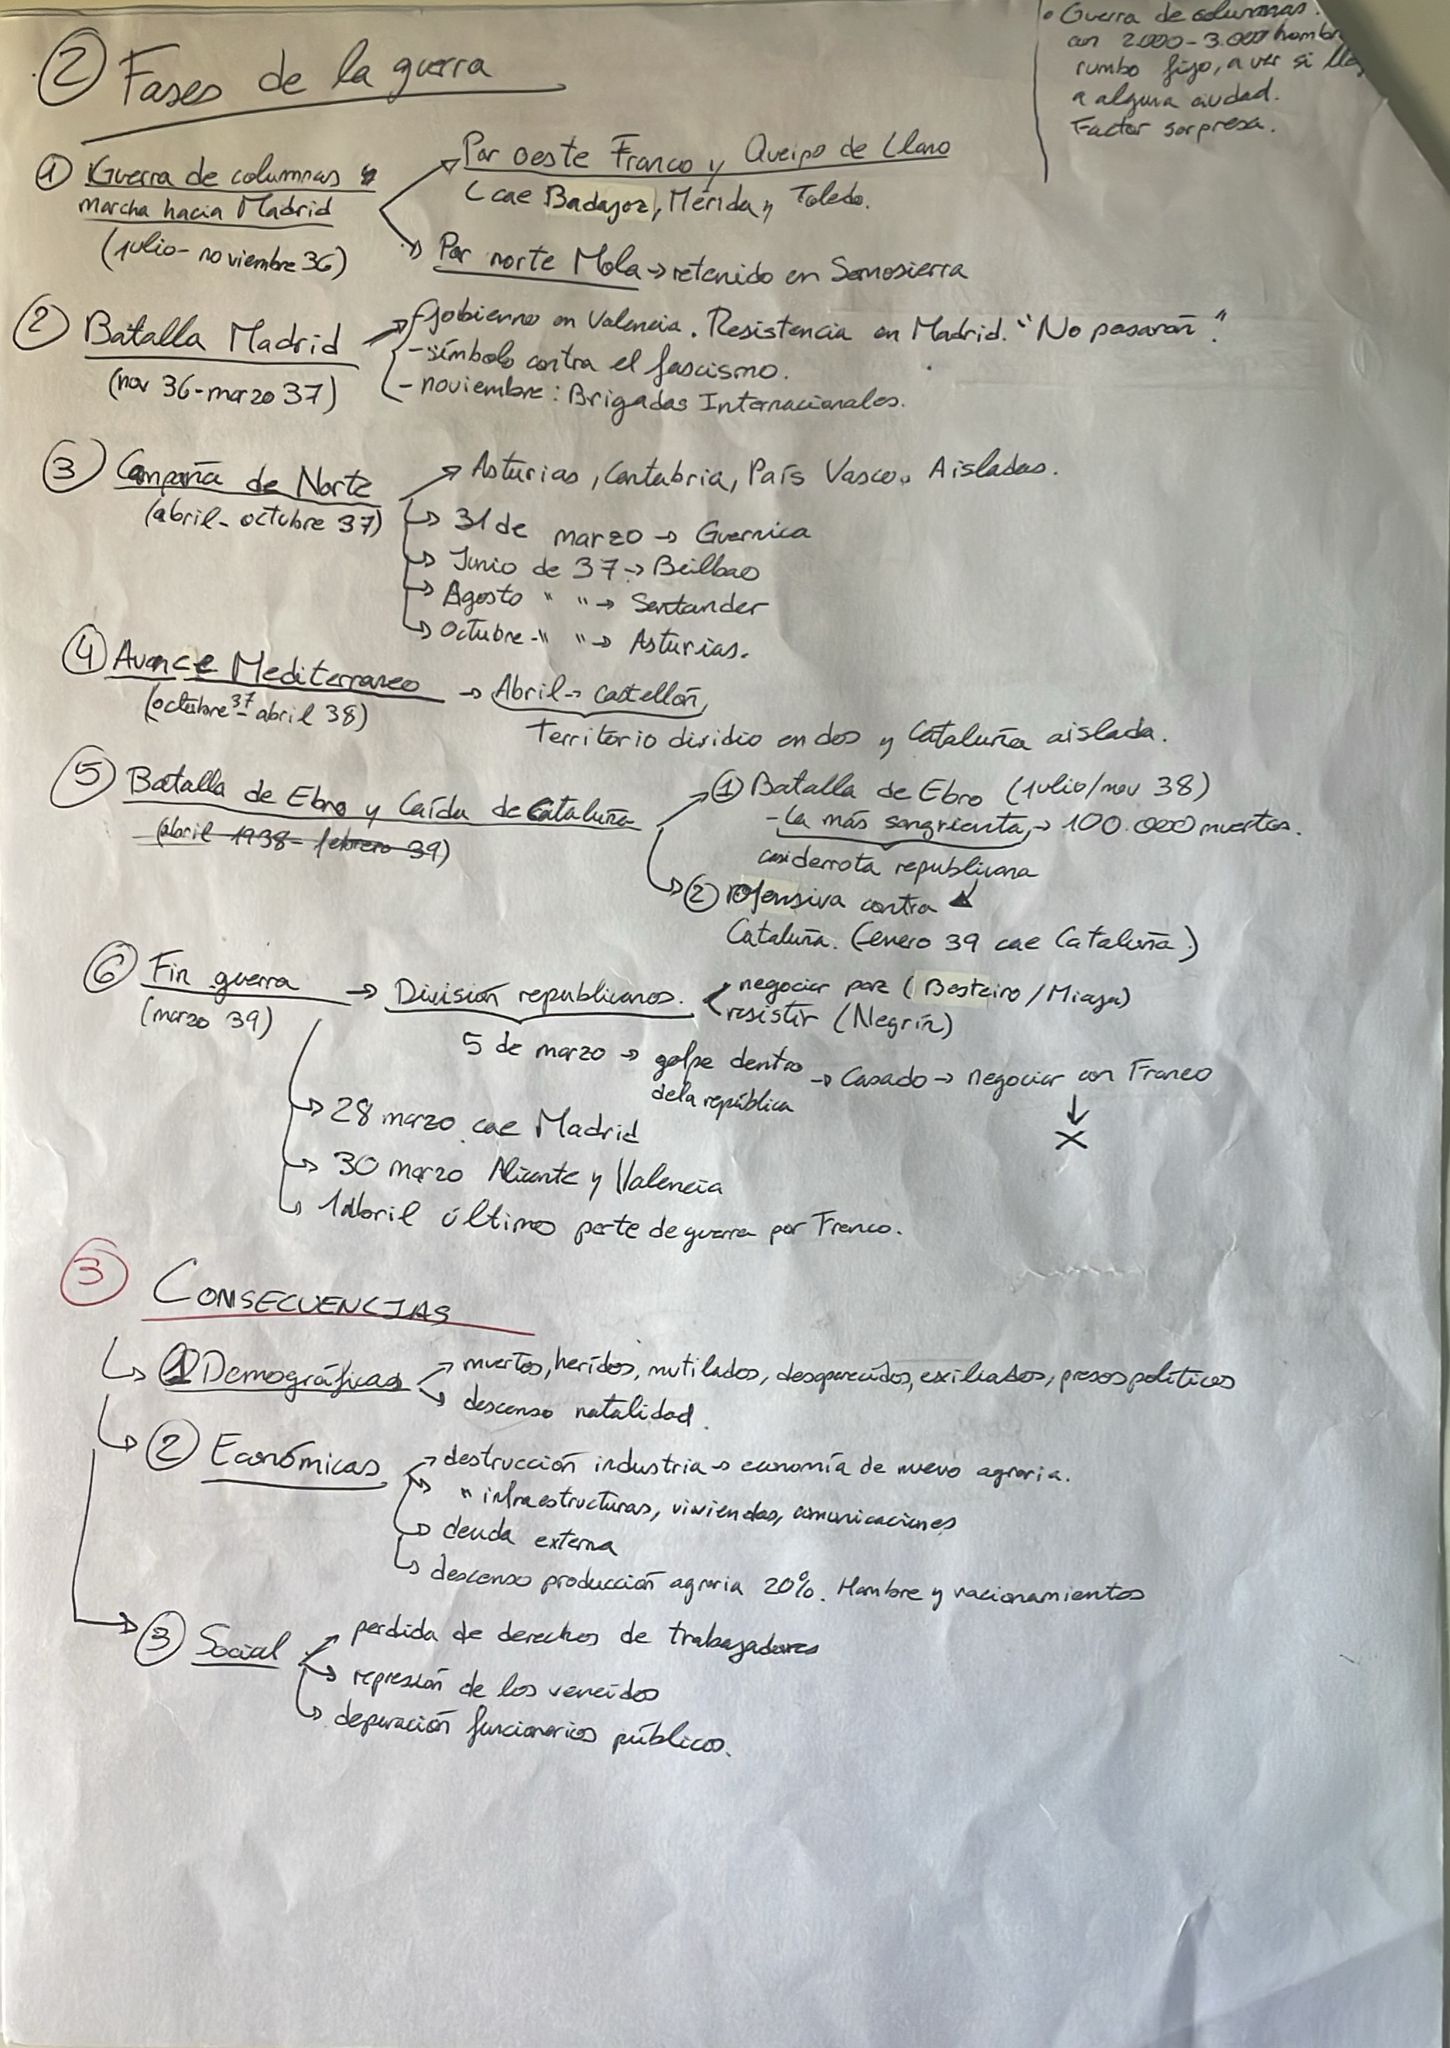 ② Fases de la guerra
• Guerra de columnas.
con 2.000-3.000 hombr
rumbo fijo, a ver si lle
a alguna ciudad.
Factor sorpresa.
① Guerra de columnas y
marcha hacia Madrid
(julio-noviembre 36)
Por oeste Franco y Queipo de Llano
cae Badajoz, Mérida y Toledo.
Por norte Mola → retenido en Somosierra
② Batalla Madrid
(nov 36-marzo 37)
- gobierno en Valencia. Resistencia en Madrid. "No pasarán".
- símbolo contra el fascismo.
- noviembre: Brigadas Internacionales.
③ Campaña de Norte
(abril-octubre 37)
→ Asturias, Cantabria, País Vasco. Aisladas.
↳ 31 de marzo → Guernica
↳ Junio de 37 → Beilbao
↳ Agosto " " → Santander
↳ Octubre " " → Asturias.
④ Avance Mediterraneo
(octubre 37-abril 38)
→ Abril → Castellón,
Territorio dividio en dos y Cataluña aislada.
⑤ Batalla de Ebro y Caída de Cataluña
(abril 1938-febrero 39)
→ ① Batalla de Ebro (julio/nov 38)
- la más sangrienta, → 100.000 muertos.
casi derrota republicana
↳ ② ofensiva contra
Cataluña. (enero 39 cae Cataluña)
⑥ Fin guerra
(marzo 39)
→ División republicanos.
negociar paz (Besteiro/Miaja)
resistir (Negrín)
5 de marzo → golpe dentro
de la república
→ Casado → negociar con Franco
↓
X
↳ 28 marzo cae Madrid
↳ 30 marzo Alicante y Valencia
↳ 1 abril último parte de guerra por Franco.
③ CONSECUENCIAS
↳ ① Demográficas
→ muertos, heridos, mutilados, desaparecidos, exiliados, presos políticos
↳ descenso natalidad.
↳ ② Económicas
→ destrucción industria → economía de nuevo agraria.
↳ " infraestructuras, viviendas, comunicaciones
↳ deuda externa
↳ descenso producción agraria 20%. Hambre y racionamientos
→ ③ Social
→ perdida de derechos de trabajadores
↳ represión de los vencidos
↳ depuración funcionarios públicos.